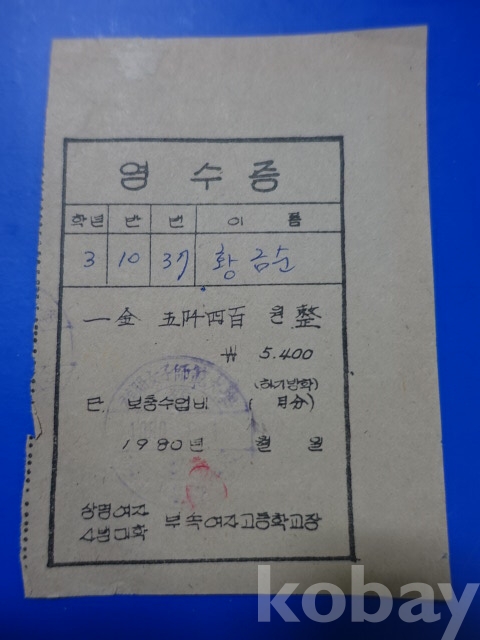 영수증
학년 반 번 이름
3 10 37 황금순
一金 五阡四百 원整
₩ 5.400
(하기방학)
단 보충수업비 ( 月分)
1980년 월 일
상명여자
사범대학 부속여자고등학교장
kobay